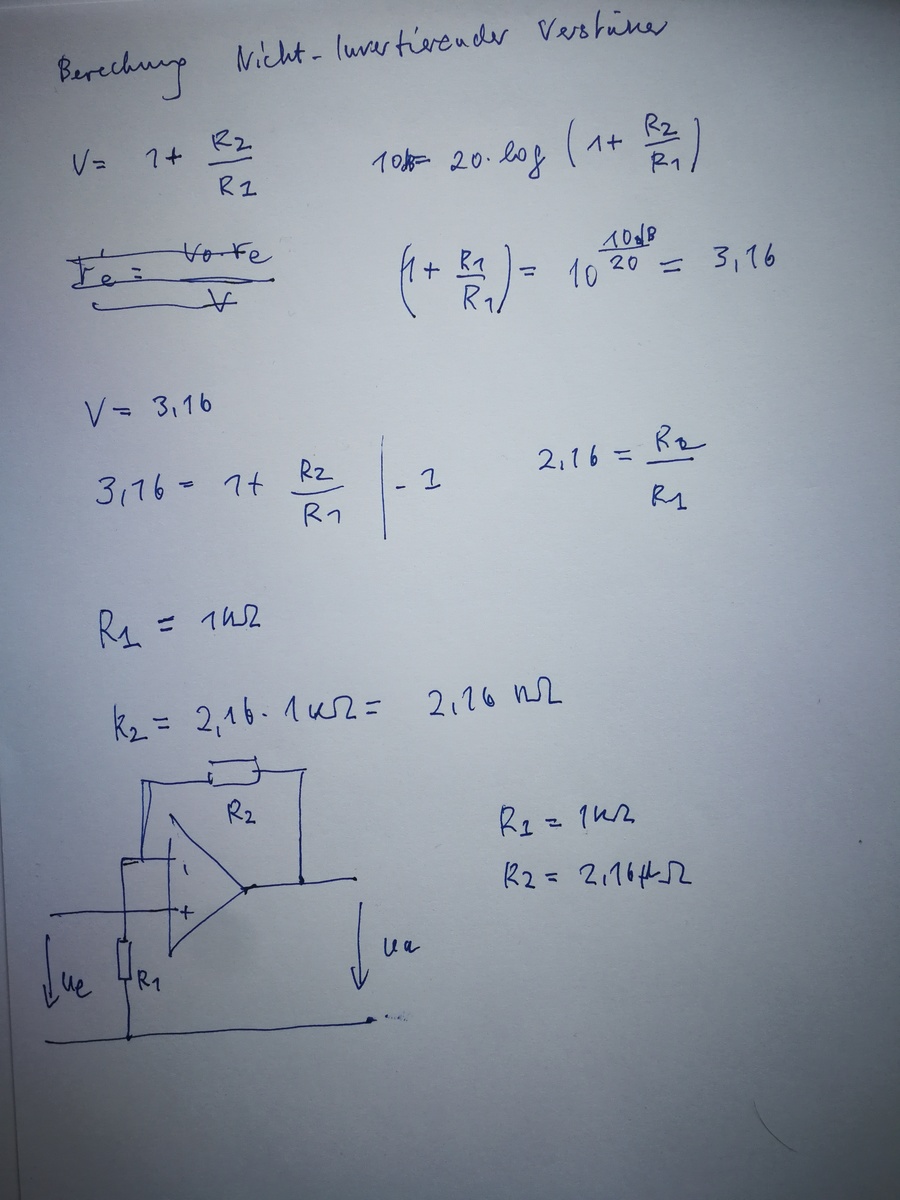 Berechung Nicht-Invertierender Verstärker
V = 1 + R2/R1
10 = 20 · log (1 + R2/R1)
re = Vo·re/V
(1 + R1/R1) = 10^(10dB/20) = 3,16
V = 3,16
3,16 = 1 + R2/R1 | - 1
2,16 = R2/R1
R1 = 1kΩ
R2 = 2,16 · 1kΩ = 2,16 kΩ
R2
R1 = 1kΩ
R2 = 2,16kΩ
-
+
ue
R1
ua